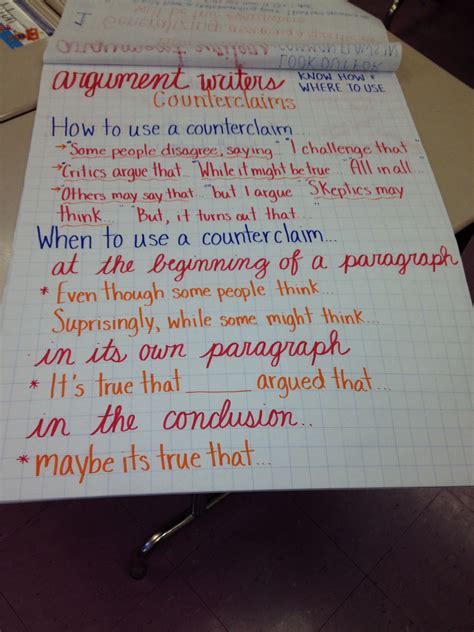 argument writers
KNOW HOW &
WHERE TO USE
Counterclaims
How to use a counterclaim...
→"Some people disagree, saying... "I challenge that"
→"Critics argue that... "While it might be true... "All in all...
→"Others may say that... "but I argue "Skeptics may
think... "But, it turns out that...
When to use a counterclaim...
at the beginning of a paragraph
* Even though some people think...
Suprisingly, while some might think...
in its own paragraph
* It's true that _____ argued that...
in the conclusion..
* maybe its true that...